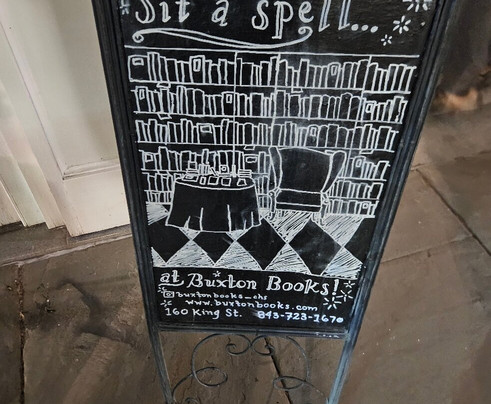 Sit a spell...
at Buxton Books!
buxtonbooks_chs
www.buxtonbooks.com
160 King St. 843-723-1670